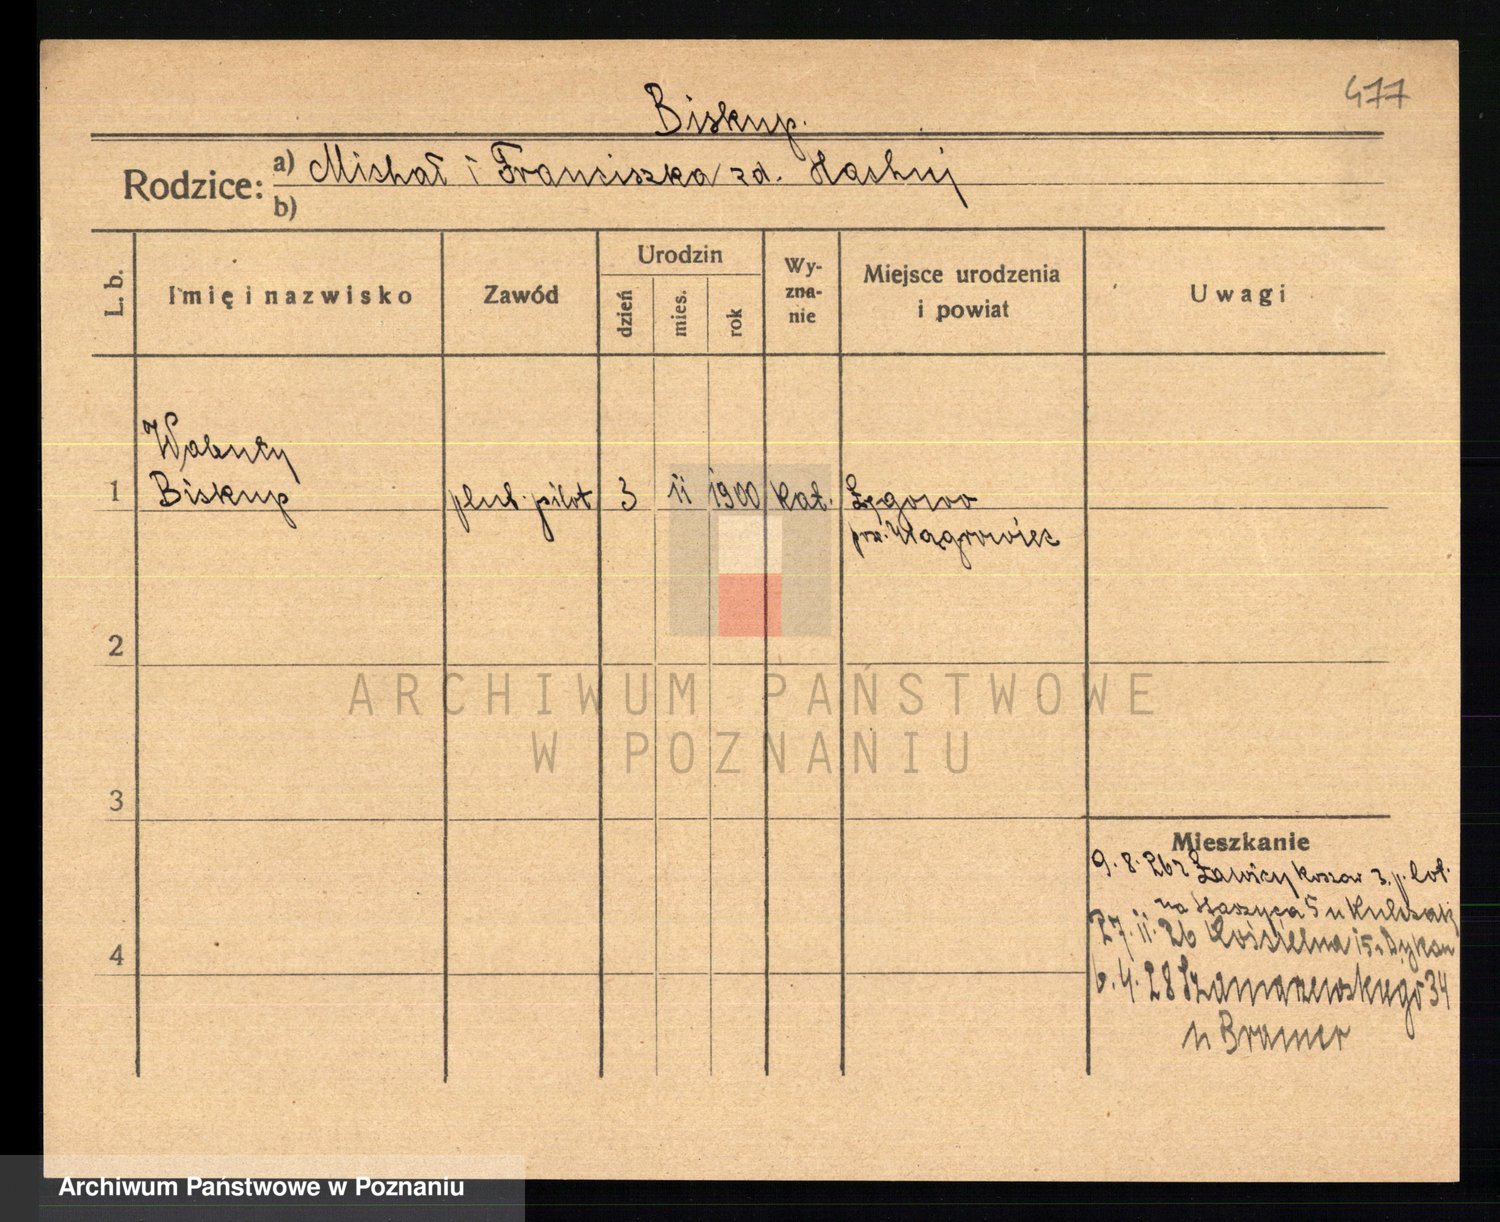 477
Biskup.
Rodzice: a) Michał i Franciszka zd.
b)
L. b.
Imię i nazwisko
Zawód
Urodzin
dzień
mies.
rok
Wy-
zna-
nie
Miejsce urodzenia
i powiat
Uwagi
Walenty
1 Biskup plut. pilot 3 11 1900 kat. Łęgowo
pow. Wągrowiec
2
ARCHIWUM PAŃSTWOWE
W POZNANIU
3
Mieszkanie
9. 8. 26 r Ławicy koszar 3. p. lot.
na 5 u
27. 11. 26 Kościelna 15
6. 4. 28 Szamarzewskiego 34
4
u Bramer
Archiwum Państwowe w Poznaniu